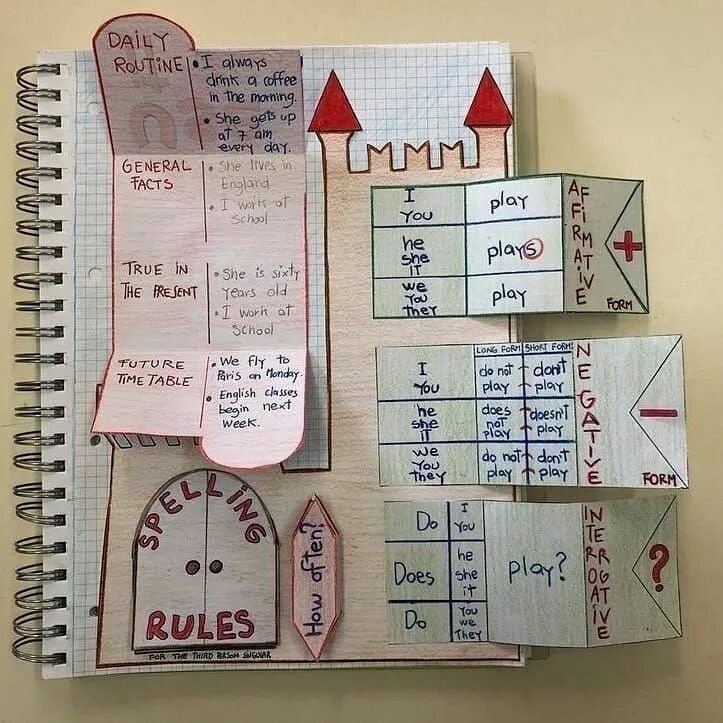 DAILY
ROUTINE
• I always
drink a coffee
in the morning.
• She gets up
at 7 am
every day.
GENERAL
FACTS
• She lives in
England
• I work at
School
TRUE IN
THE PRESENT
• She is sixty
years old
• I work at
School
FUTURE
TIMETABLE
• We fly to
Paris on Monday.
• English classes
begin next
week.
SPELLING
RULES
FOR THE THIRD PERSON SINGULAR
How often?
I
You
play
he
she
it
plays
we
You
they
play
AFFIRMATIVE
FORM
+
LONG FORM
SHORT FORM
I
You
do not
play
don't
play
he
she
it
does
not
play
doesn't
play
we
You
they
do not
play
don't
play
NEGATIVE
FORM
–
Do
I
You
Does
he
she
it
Do
You
we
They
play?
INTERROGATIVE
?